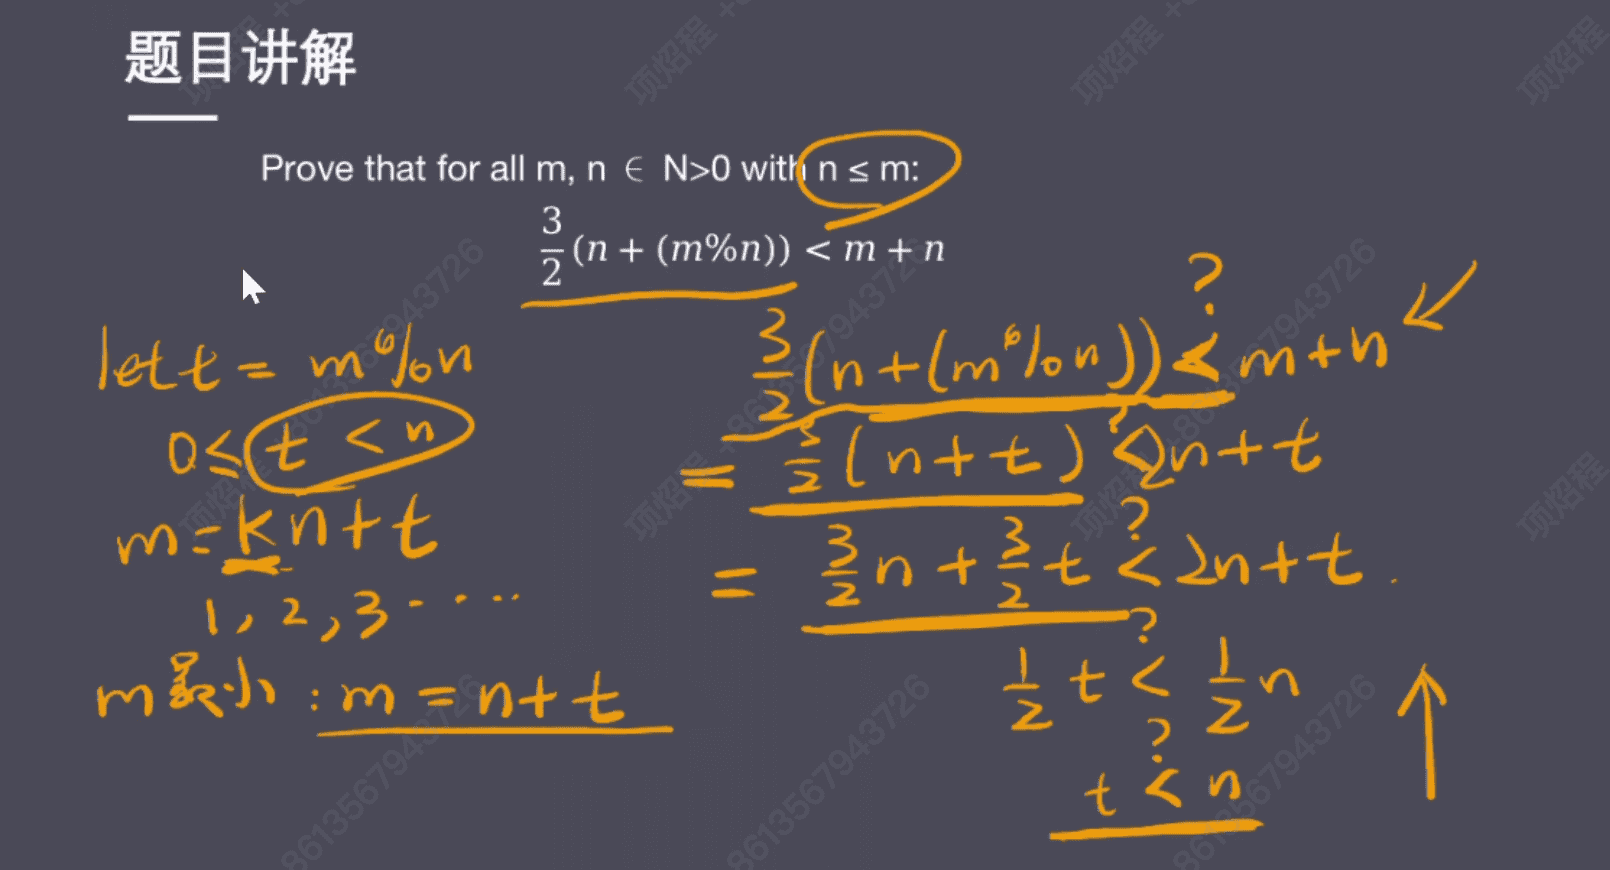 题目讲解
Prove that for all m, n ∈ N>0 with n ≤ m:
3/2 (n + (m%n)) < m + n
let t = m%n
0 ≤ t < n
m = kn + t
1, 2, 3 ....
m最小: m = n + t
?
3/2 (n + (m%n)) < m + n
?
= 3/2 (n + t) < 2n + t
?
= 3/2 n + 3/2 t < 2n + t.
?
1/2 t < 1/2 n
?
t < n
项焰程 +8613567943726